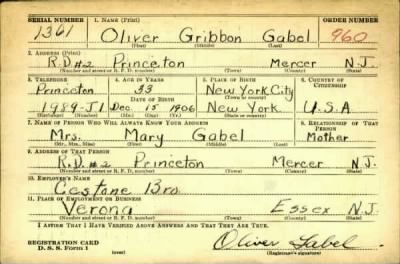 SERIAL NUMBER 1. NAME (Print) ORDER NUMBER
1361 Oliver Gribbon Gabel 960
(First) (Middle) (Last)
2. ADDRESS (Print)
R.D.#2 Princeton Mercer N.J.
(Number and street or R. F. D. number) (Town) (County) (State)
3. TELEPHONE 4. AGE IN YEARS 5. PLACE OF BIRTH 6. COUNTRY OF CITIZENSHIP
Princeton 33 New York City
DATE OF BIRTH (Town or county)
1989-J1 Dec 15 1906 New York U.S.A
(Exchange) (Number) (Mo.) (Day) (Yr.) (State or country)
7. NAME OF PERSON WHO WILL ALWAYS KNOW YOUR ADDRESS 8. RELATIONSHIP OF THAT PERSON
Mrs. Mary Gabel Mother
(Mr., Mrs., Miss) (First) (Middle) (Last)
9. ADDRESS OF THAT PERSON
R.D.#2 Princeton Mercer N.J.
(Number and street or R. F. D. number) (Town) (County) (State)
10. EMPLOYER'S NAME
Cestone Bro
11. PLACE OF EMPLOYMENT OR BUSINESS
Verona Essex N.J
(Number and street or R. F. D. number) (Town) (County) (State)
I AFFIRM THAT I HAVE VERIFIED ABOVE ANSWERS AND THAT THEY ARE TRUE.
REGISTRATION CARD Oliver Gabel.
D. S. S. Form 1 (over) (Registrant's signature)